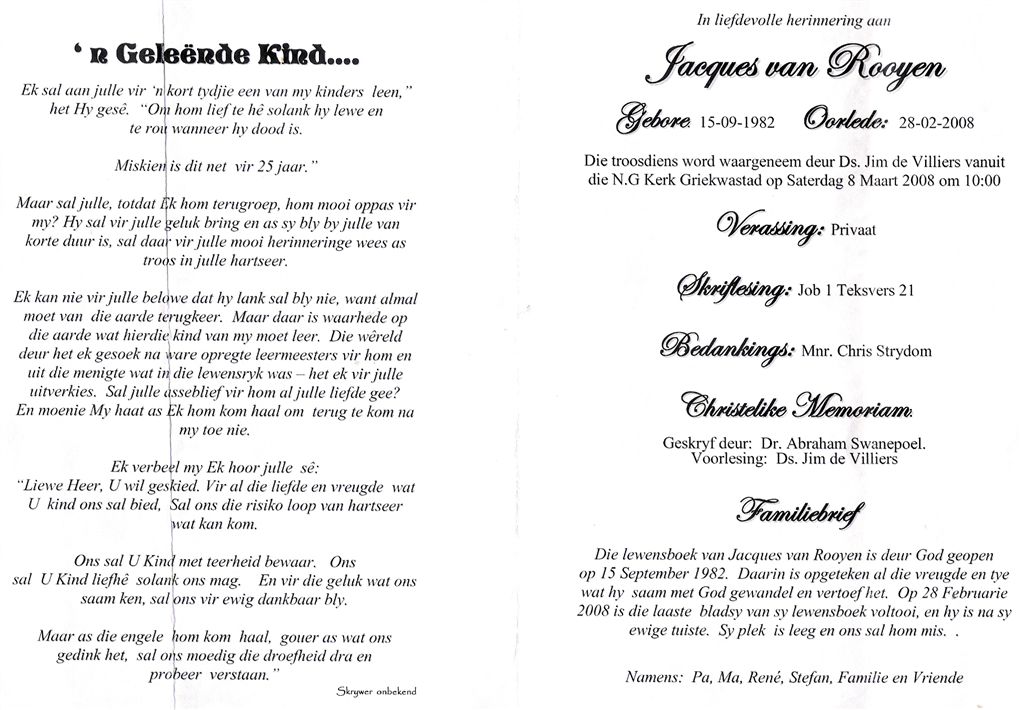 ‘ n Geleënde Kind....
Ek sal aan julle vir ‘n kort tydjie een van my kinders leen,”
het Hy gesê. “Om hom lief te hê solank hy lewe en
te rou wanneer hy dood is.
Miskien is dit net vir 25 jaar.”
Maar sal julle, totdat Ek hom terugroep, hom mooi oppas vir
my? Hy sal vir julle geluk bring en as sy bly by julle van
korte duur is, sal daar vir julle mooi herinneringe wees as
troos in julle hartseer.
Ek kan nie vir julle belowe dat hy lank sal bly nie, want almal
moet van die aarde terugkeer. Maar daar is waarhede op
die aarde wat hierdie kind van my moet leer. Die wêreld
deur het ek gesoek na ware opregte leermeesters vir hom en
uit die menigte wat in die lewensryk was – het ek vir julle
uitverkies. Sal julle asseblief vir hom al julle liefde gee?
En moenie My haat as Ek hom kom haal om terug te kom na
my toe nie.
Ek verbeel my Ek hoor julle sê:
“Liewe Heer, U wil geskied. Vir al die liefde en vreugde wat
U kind ons sal bied, Sal ons die risiko loop van hartseer
wat kan kom.
Ons sal U Kind met teerheid bewaar. Ons
sal U Kind liefhê solank ons mag. En vir die geluk wat ons
saam ken, sal ons vir ewig dankbaar bly.
Maar as die engele hom kom haal, gouer as wat ons
gedink het, sal ons moedig die droefheid dra en
probeer verstaan.”
Skrywer onbekend
In liefdevolle herinnering aan
Jacques van Rooyen
Gebore: 15-09-1982 Oorlede: 28-02-2008
Die troosdiens word waargeneem deur Ds. Jim de Villiers vanuit
die N.G Kerk Griekwastad op Saterdag 8 Maart 2008 om 10:00
Verassing: Privaat
Skriflesing: Job 1 Teksvers 21
Bedankings: Mnr. Chris Strydom
Christelike Memoriam:
Geskryf deur: Dr. Abraham Swanepoel.
Voorlesing: Ds. Jim de Villiers
Familiebrief
Die lewensboek van Jacques van Rooyen is deur God geopen
op 15 September 1982. Daarin is opgeteken al die vreugde en tye
wat hy saam met God gewandel en vertoef het. Op 28 Februarie
2008 is die laaste bladsy van sy lewensboek voltooi, en hy is na sy
ewige tuiste. Sy plek is leeg en ons sal hom mis. .
Namens: Pa, Ma, René, Stefan, Familie en Vriende